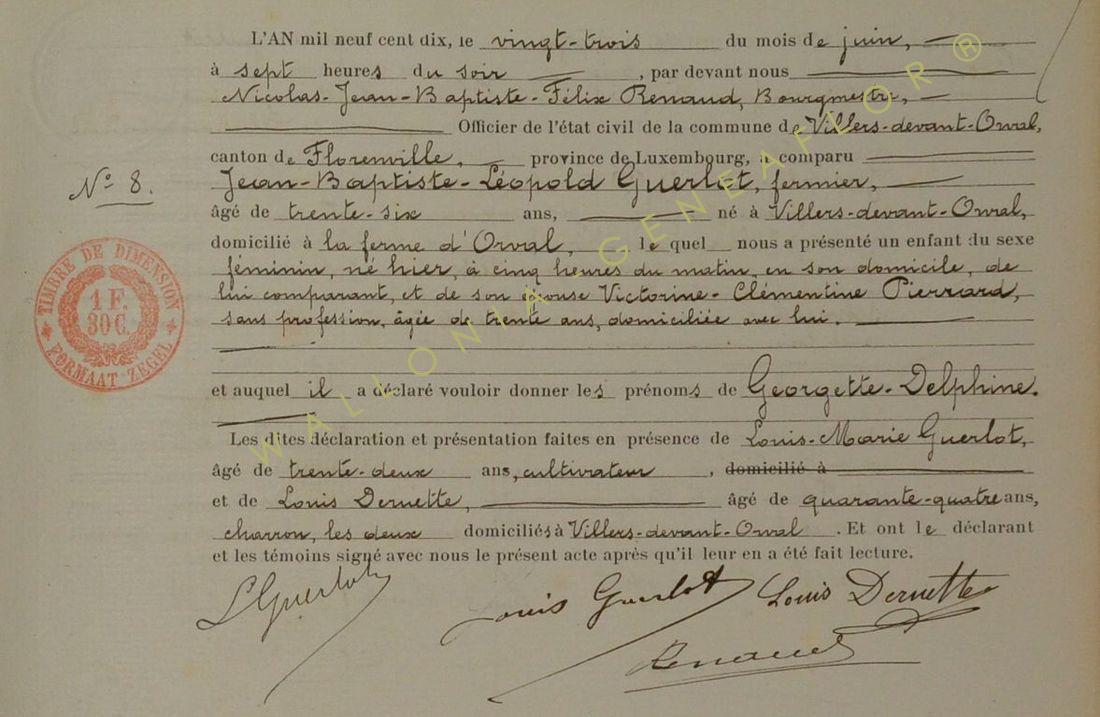 L'AN mil neuf cent dix, le vingt-trois du mois de juin,
à sept heures du soir, par devant nous
Nicolas-Jean-Baptiste-Félix Renaud, Bourgmestre,
Officier de l'état civil de la commune de Villers-devant-Orval,
canton de Florenville, province de Luxembourg, a comparu
Jean-Baptiste-Léopold Guerlot, fermier,
N° 8.
âgé de trente-six ans, né à Villers-devant-Orval,
domicilié à la ferme d'Orval, le quel nous a présenté un enfant du sexe
féminin, né hier, à cinq heures du matin, en son domicile, de
lui comparant, et de son épouse Victorine-Clémentine Pierrard,
sans profession, âgée de trente ans, domiciliée avec lui.
TIMBRE DE DIMENSION
1 F.
30 C.
FORMAAT-ZEGEL
et auquel il a déclaré vouloir donner les prénoms de Georgette-Delphine.
Les dites déclaration et présentation faites en présence de Louis-Marie Guerlot,
âgé de trente-deux ans, cultivateur, domicilié à
et de Louis Dernette, âgé de quarante-quatre ans,
charron, les deux domiciliés à Villers-devant-Orval. Et ont le déclarant
et les témoins signé avec nous le présent acte après qu'il leur en a été fait lecture.
LGuerlot Louis Guerlot Louis Dernette
Renaud
WALLONIA GENEAFLOR ®